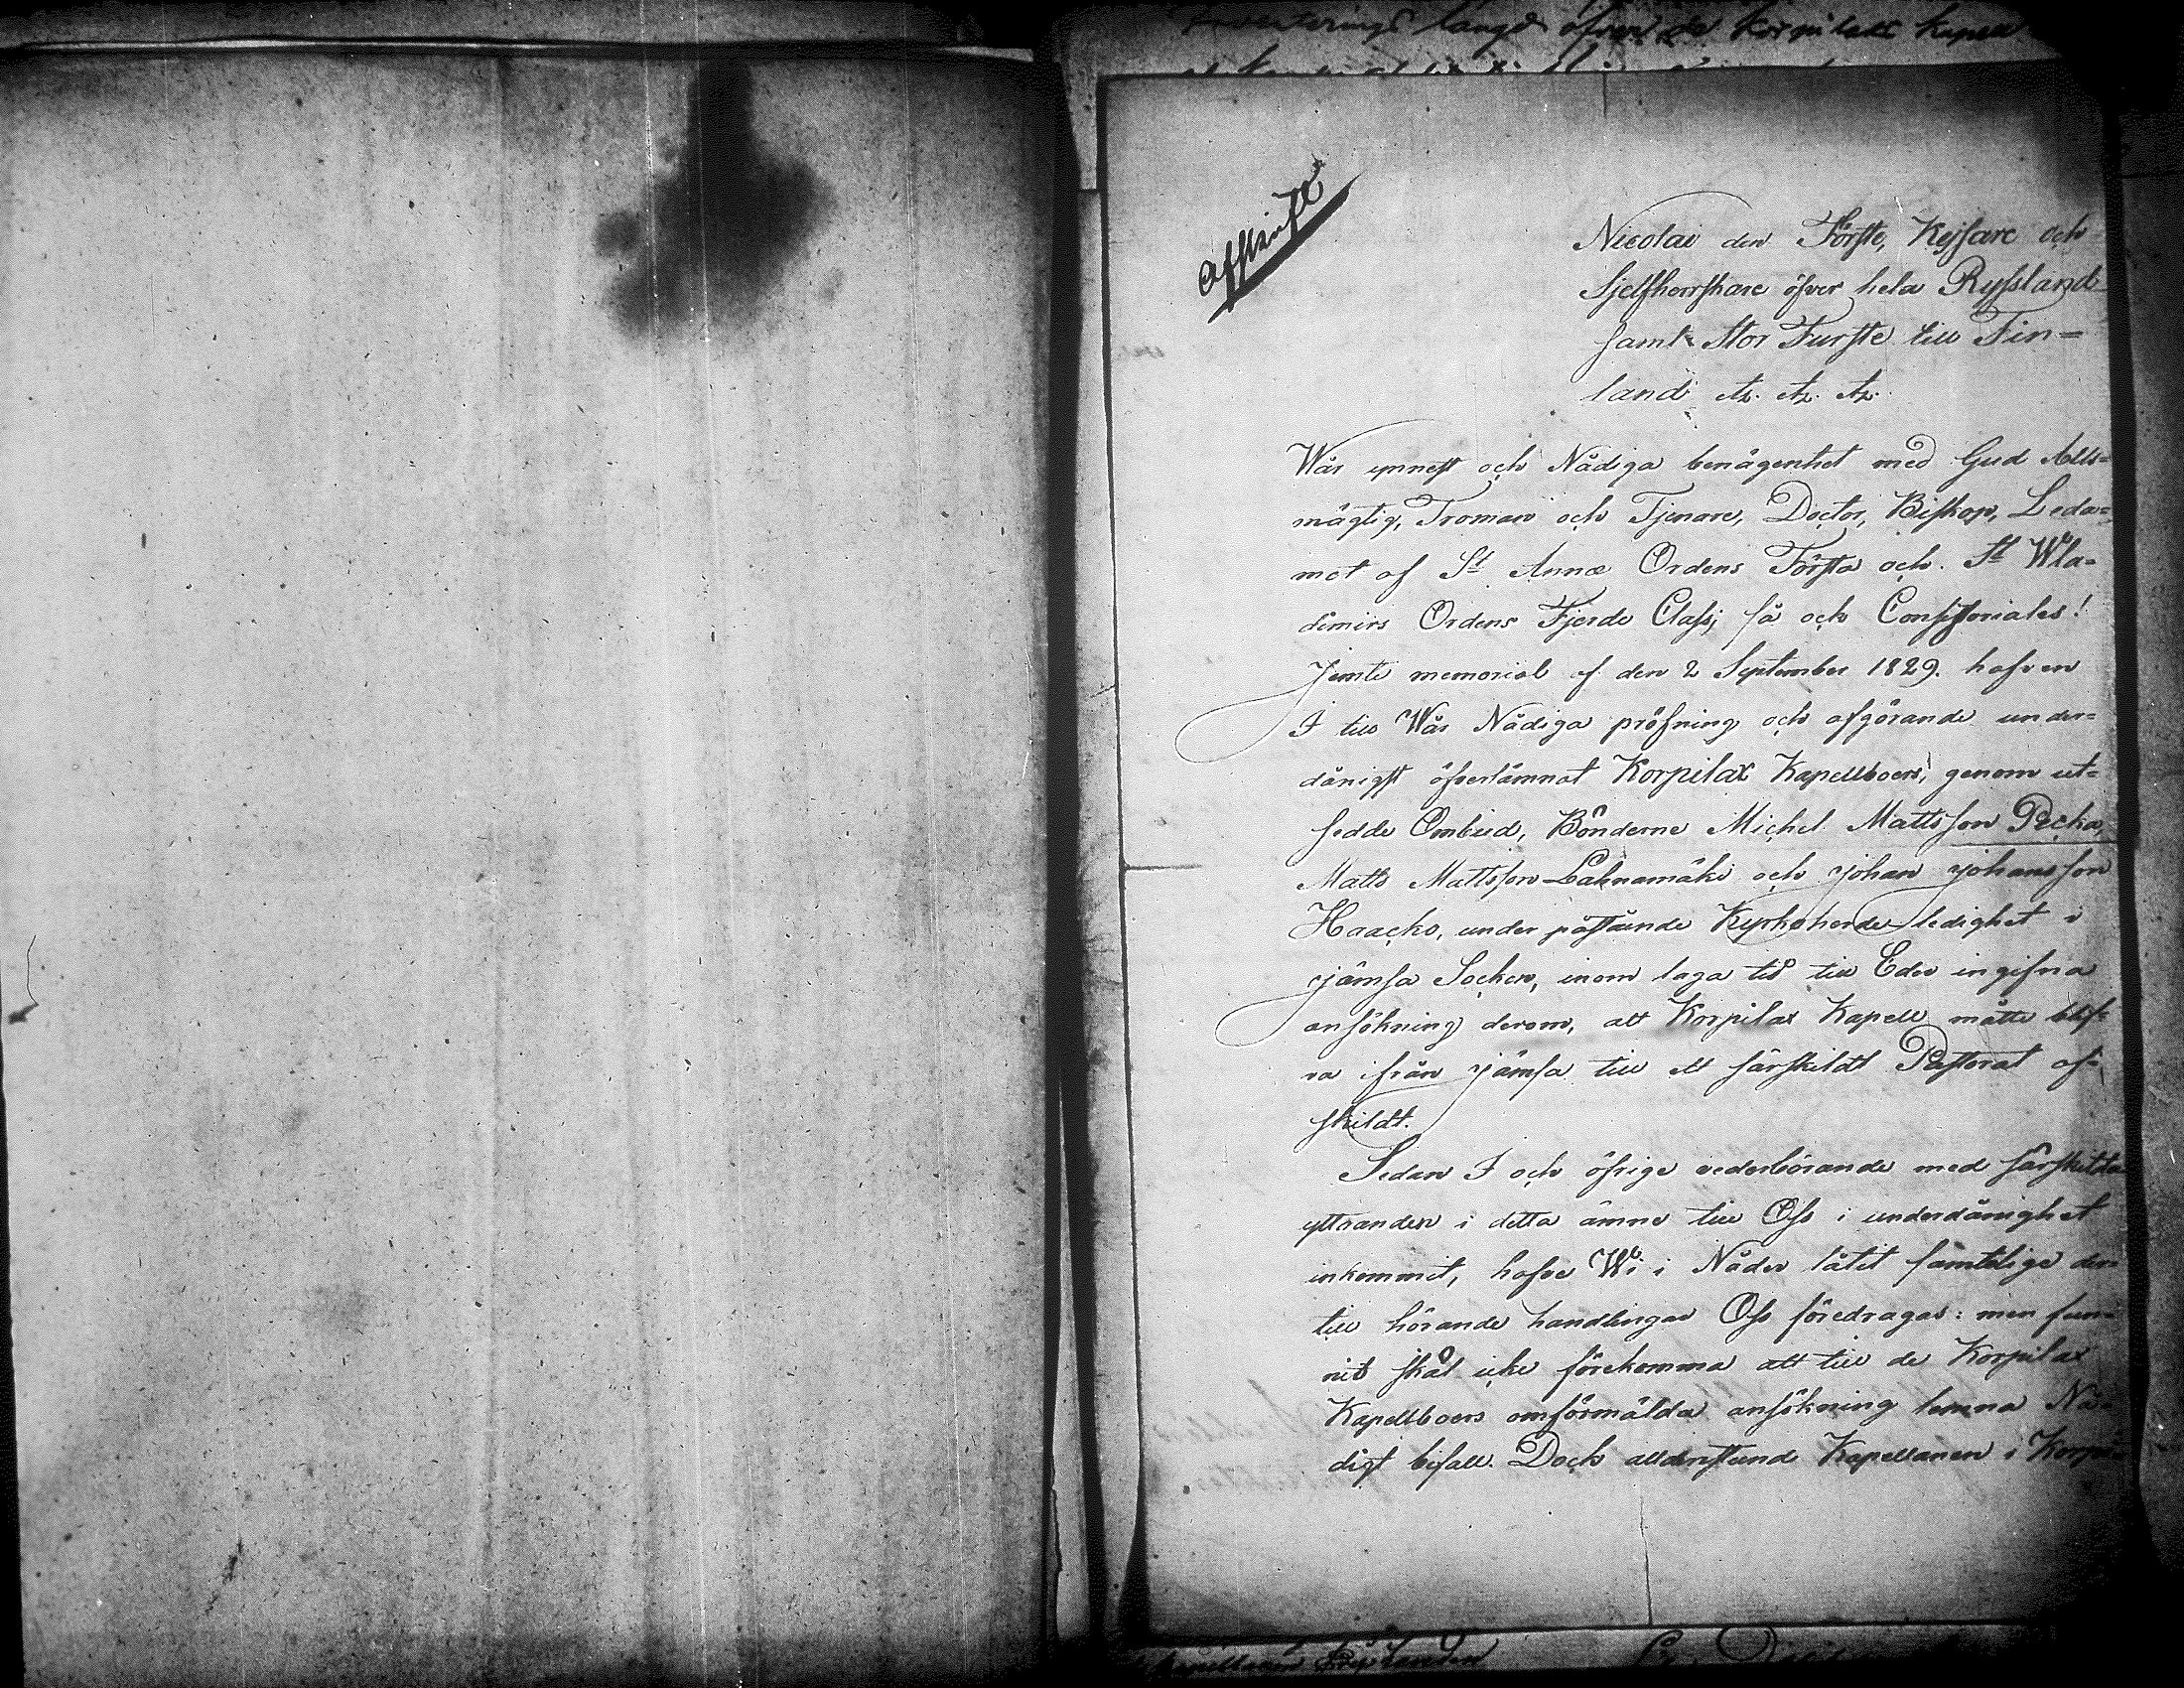 längd öfver de Korpilaks kapell
Afskrift
Nicolai den Förste, Kejsare och
Sjelfherrskare öfver hela Ryssland
samt Stor Furste till Fin=
land etz. etz. etz.
Wår ynnest och Nådiga benägenhet med Gud Alls=
mägtig, Troman och Tjenare, Doctor, Biskop, Leda=
mot af St Annæ Ordens Första och St Wla=
dimirs Ordens Fjerde Class, så ock Consistoriales!
Jemte memorial af den 2 September 1829. hafven
I till Wår Nådiga pröfning och afgörande under=
dånigst öfverlämnat Korpilax Kapellboers, genom ut=
sedde Ombud, Bönderne Michel Mattsson Pecka,
Matts Mattsson Lahnamäki och Johan Johansson
Haacko, under påstående Kyrkoherde ledighet i
Jämsä Socken, inom laga tid till Eder ingifna
ansökning derom, att Korpilax Kapell måtte blif=
va ifrån Jämsä till ett särskildt Pastorat af=
skildt.
Sedan I och öfrige vederbörande med särskilda
yttranden i detta ämne till Oss i underdånighet
inkommit, hafve Wi i Nåder låtit samtelige der=
till hörande handlingar Oss föredragas: men fun=
nit skäl icke förekomma att till de Korpilax
Kapellboers omförmälda ansökning lemna Nå=
digt bifall. Dock alldenstund Kapellanen i Korpi=